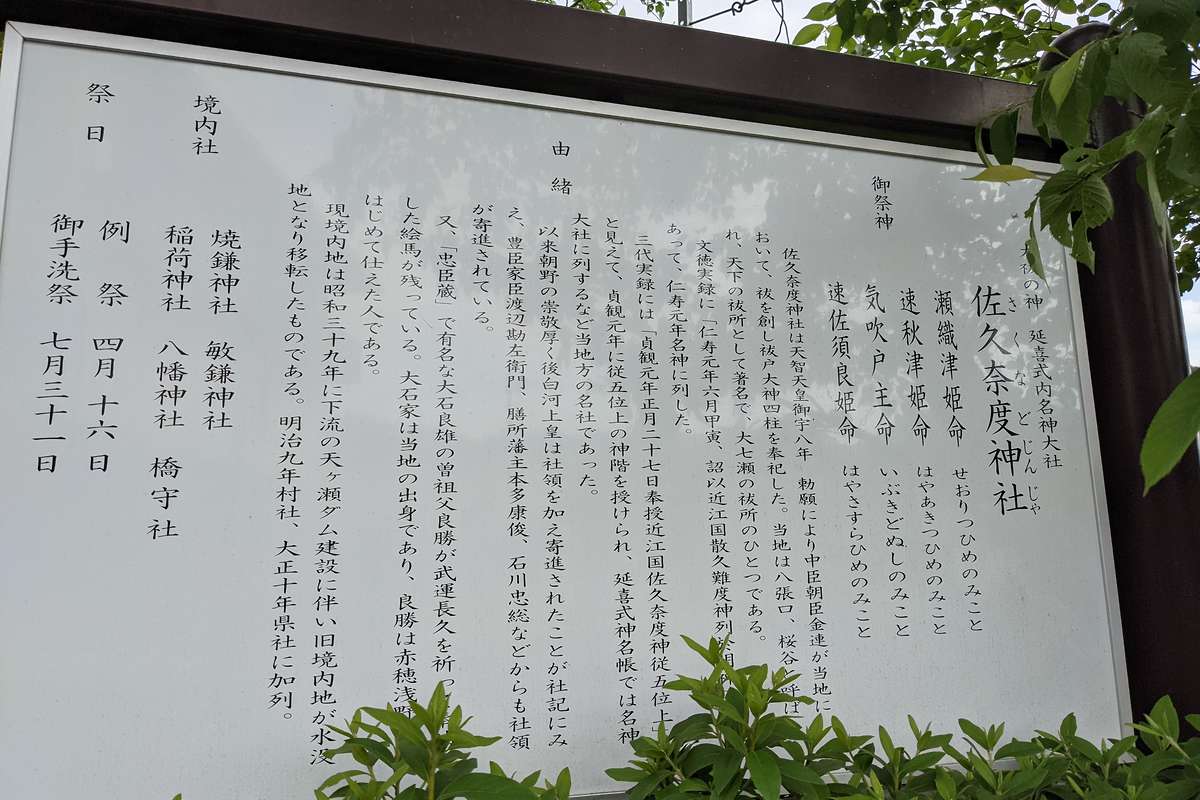 祓の神　延喜式内名神大社
佐久奈度神社
さくなどじんじゃ
御祭神
瀬織津姫命　せおりつひめのみこと
速秋津姫命　はやあきつひめのみこと
気吹戸主命　いぶきどぬしのみこと
速佐須良姫命　はやさすらひめのみこと
由緒
佐久奈度神社は天智天皇御宇八年　勅願により中臣朝臣金連が当地に
おいて、祓を創し祓戸大神四柱を奉祀した。当地は八張口、桜谷と呼ば
れ、天下の祓所として著名で、大七瀬の祓所のひとつである。
文徳実録に「仁寿元年六月甲寅、詔以近江国散久難度神列於明神
あって、仁寿元年名神に列した。
三代実録には「貞観元年正月二十七日奉授近江国佐久奈度神従五位上」
と見えて、貞観元年に従五位上の神階を授けられ、延喜式神名帳では名神
大社に列するなど当地方の名社であった。
以来朝野の崇敬厚く後白河上皇は社領を加え寄進されたことが社記にみ
え、豊臣家臣渡辺勘左衛門、膳所藩主本多康俊、石川忠総などからも社領
が寄進されている。
又、「忠臣蔵」で有名な大石良雄の曽祖父良勝が武運長久を祈っ
した絵馬が残っている。大石家は当地の出身であり、良勝は赤穂浅野
はじめて仕えた人である。
現境内地は昭和三十九年に下流の天ヶ瀬ダム建設に伴い旧境内地が水没
地となり移転したものである。明治九年村社、大正十年県社に加列。
境内社
焼鎌神社　敏鎌神社
稲荷神社　八幡神社　橋守社
祭日
例祭　四月十六日
御手洗祭　七月三十一日